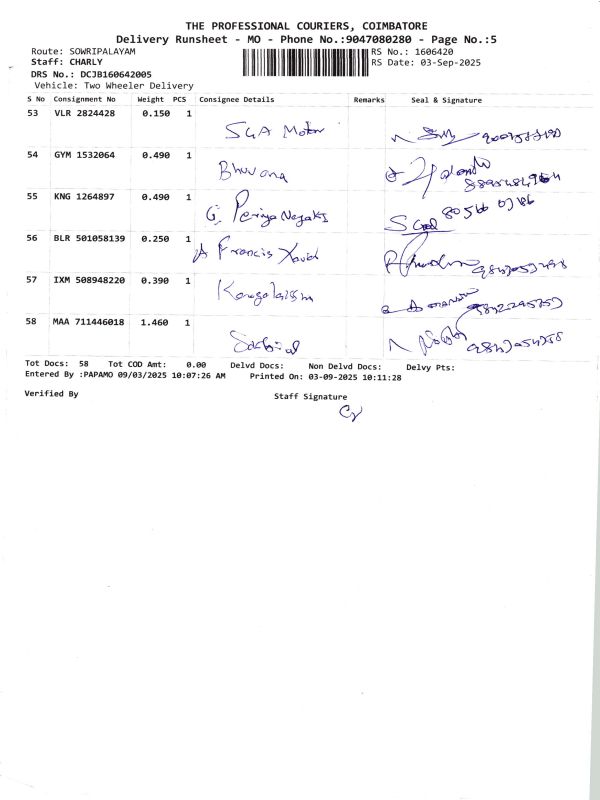 THE PROFESSIONAL COURIERS, COIMBATORE
Delivery Runsheet - MO - Phone No.:9047080280 - Page No.:5
Route: SOWRIPALAYAM RS No.: 1606420
Staff: CHARLY RS Date: 03-Sep-2025
DRS No.: DCJB160642005
Vehicle: Two Wheeler Delivery
S No Consignment No Weight PCS Consignee Details Remarks Seal & Signature
53 VLR 2824428 0.150 1
SGA Motor
54 GYM 1532064 0.490 1
Bhuvana
55 KNG 1264897 0.490 1
G. Periya Nayaki 80566
56 BLR 501058139 0.250 1
A Francis Xavier
57 IXM 508948220 0.390 1
58 MAA 711446018 1.460 1
Tot Docs: 58 Tot COD Amt: 0.00 Delvd Docs: Non Delvd Docs: Delvy Pts:
Entered By :PAPAMO 09/03/2025 10:07:26 AM Printed On: 03-09-2025 10:11:28
Verified By Staff Signature